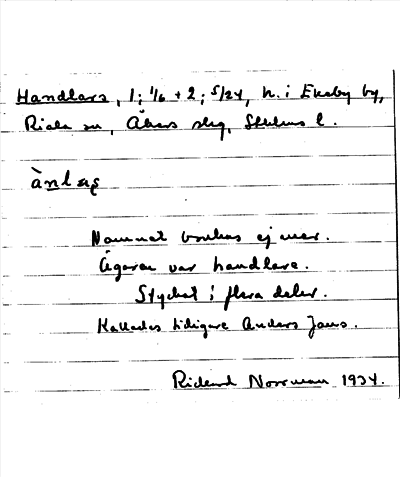 Handlars, 1; 1/6 + 2; 5/24, h. i Ekeby by,
Riala sn, Åkers slg, Sthlms l.
ànḷaṣ
Namnet brukas ej mer.
Ägaren var handlare.
Styckat i flera delar.
Kallades tidigare Anders Jans.
Rickard Norrman 1934.